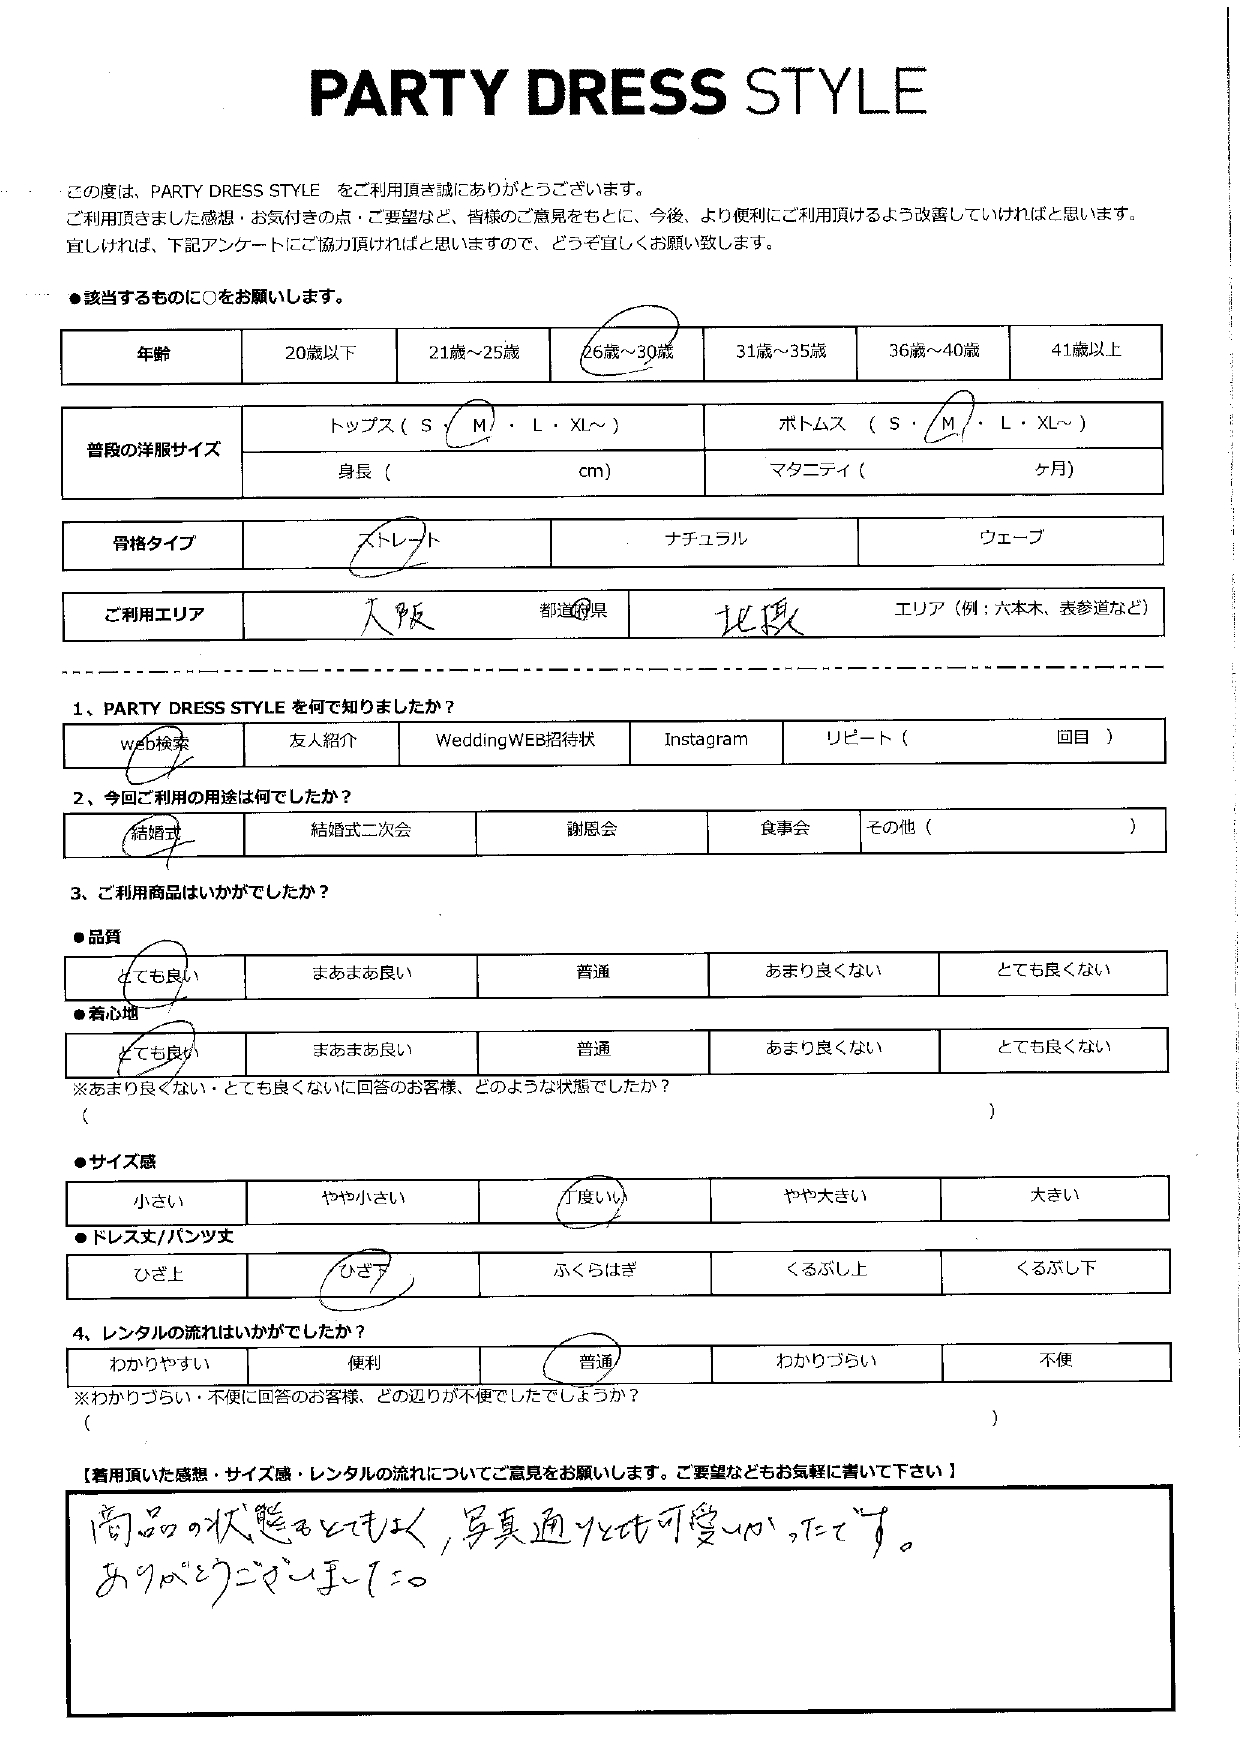 PARTY DRESS STYLE
この度は、PARTY DRESS STYLE　をご利用頂き誠にありがとうございます。
ご利用頂きました感想・お気付きの点・ご要望など、皆様のご意見をもとに、今後、より便利にご利用頂けるよう改善していければと思います。
宜しければ、下記アンケートにご協力頂ければと思いますので、どうぞ宜しくお願い致します。
●該当するものに○をお願いします。
年齢 20歳以下 21歳～25歳 26歳～30歳 31歳～35歳 36歳～40歳 41歳以上
普段の洋服サイズ トップス ( S ・ M ・ L ・ XL～ ) ボトムス ( S ・ M ・ L ・ XL～ )
身長 ( cm) マタニティ ( ヶ月)
骨格タイプ ストレート ナチュラル ウェーブ
ご利用エリア 大阪 都道府県 北摂 エリア（例：六本木、表参道など）
1、PARTY DRESS STYLE を何で知りましたか？
web検索 友人紹介 WeddingWEB招待状 Instagram リピート ( 回目 )
2、今回ご利用の用途は何でしたか？
結婚式 結婚式二次会 謝恩会 食事会 その他 ( )
3、ご利用商品はいかがでしたか？
●品質
とても良い まあまあ良い 普通 あまり良くない とても良くない
●着心地
とても良い まあまあ良い 普通 あまり良くない とても良くない
※あまり良くない・とても良くないに回答のお客様、どのような状態でしたか？
( )
●サイズ感
小さい やや小さい 丁度いい やや大きい 大きい
●ドレス丈/パンツ丈
ひざ上 ひざ下 ふくらはぎ くるぶし上 くるぶし下
4、レンタルの流れはいかがでしたか？
わかりやすい 便利 普通 わかりづらい 不便
※わかりづらい・不便に回答のお客様、どの辺りが不便でしたでしょうか？
( )
【着用頂いた感想・サイズ感・レンタルの流れについてご意見をお願いします。ご要望などもお気軽に書いて下さい】
商品の状態もとてもよく，写真通りとても可愛いかったです。
ありがとうございました。